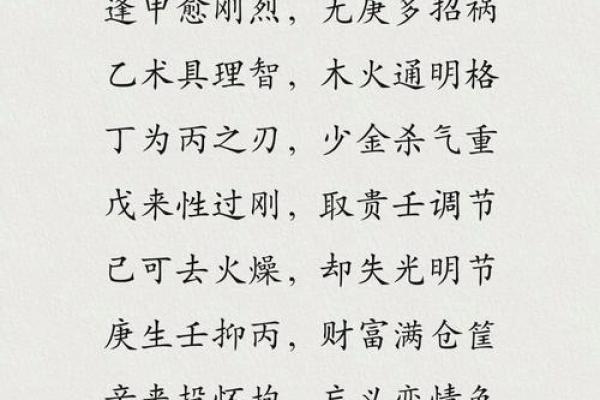 逢甲愈刚烈，无庚多招祸
乙术具理智，木火通明格
丁为丙之刃，少金杀气重
戊来性过刚，取贵壬调节
己可去火燥，却失光明节
庚生壬抑丙，财富满仓筐
辛来投怀抱，忘义恋情色